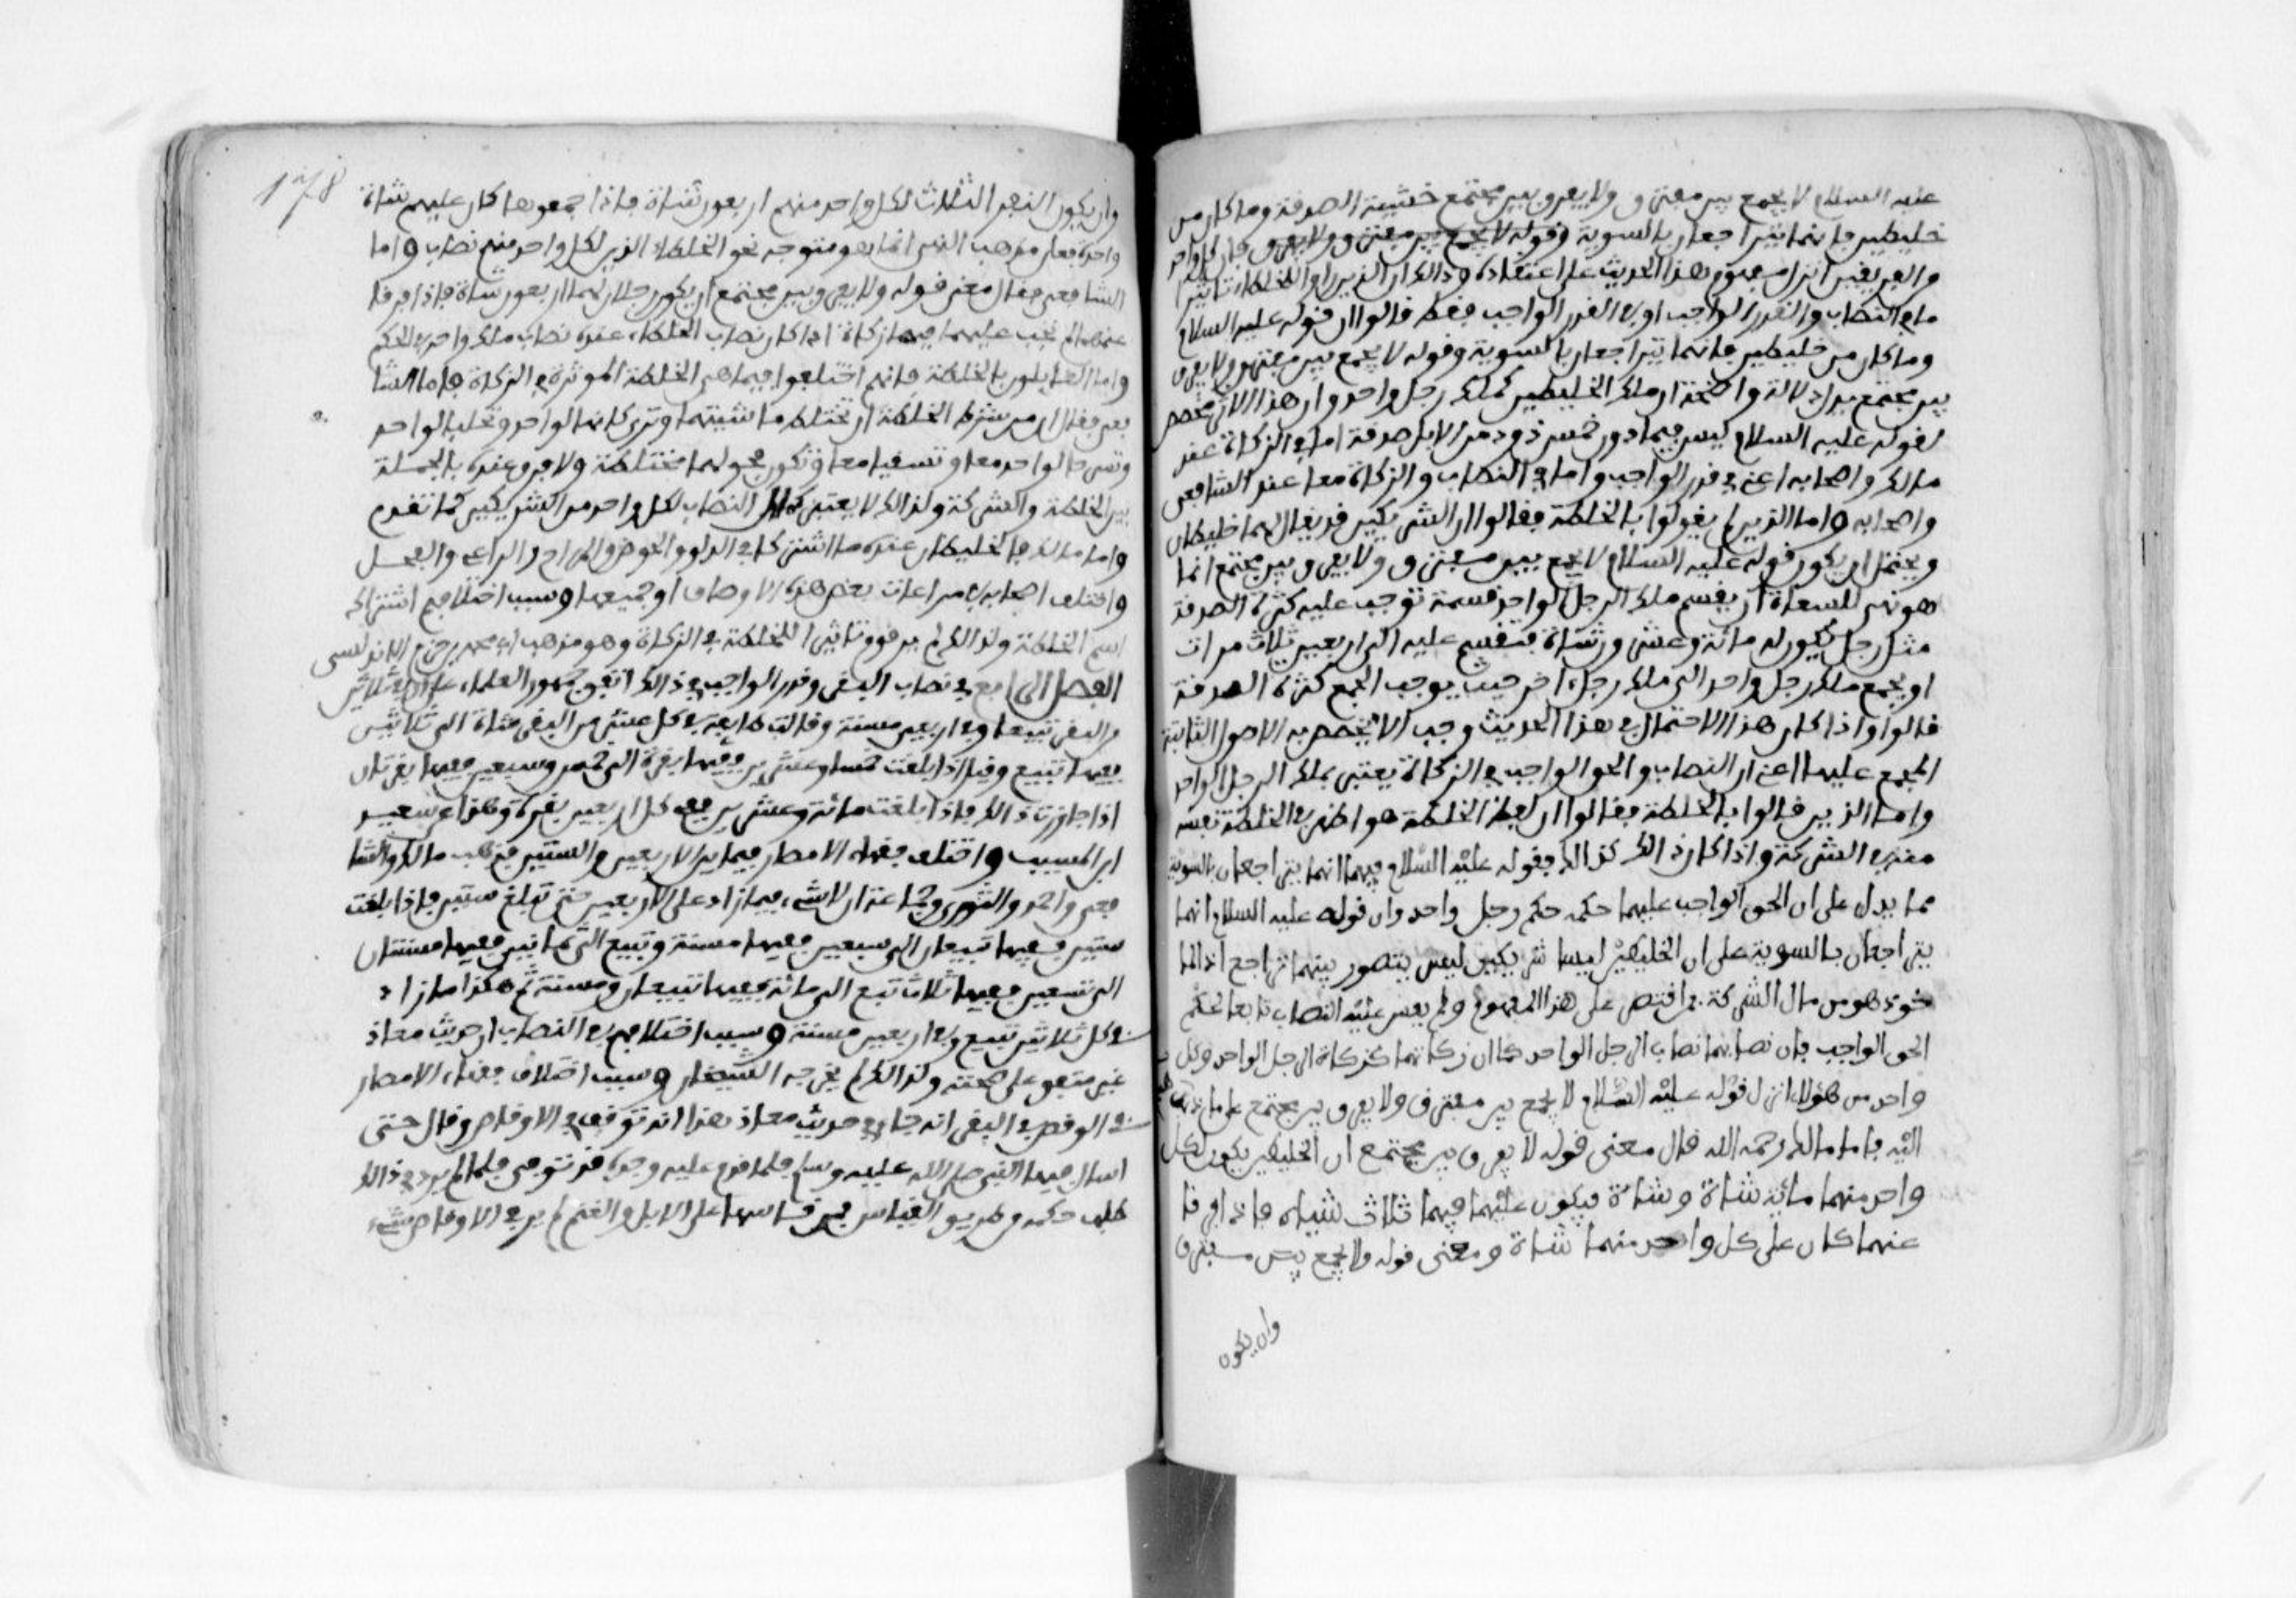 عليه السلام لا يجمع بين مفترق ولا يفرق بين مجتمع خشية الصدقة وما كان من
خليطين فإنهما يتراجعان بالسوية وقوله لا يجمع بين مفترق ولا يفرق فإن كل واحد
من الفريقين أنزل مفهوم هذا الحديث على اعتقاده وذالك أن الذين رأوا للخلطة تأثيرا
ما في النصاب والقدر الواجب أو في القدر الواجب فقط قالوا إن قوله عليه السلام
وما كان من خليطين فإنهما يتراجعان بالسوية وقوله لا يجمع بين مفترق ولا يفرق
بين مجتمع يدل دلالة واضحة أن ملك الخليطين كملك رجل واحد وأن هذا الأثر مخصص
لقوله عليه السلام ليس فيما دون خمس ذود من الإبل صدقة إما في الزكاة عند
مالك وأصحابه أعني في قدر الواجب وإما في النصاب والزكاة معا عند الشافعي
وأصحابه وأما الذين لم يقولوا بالخلطة فقالوا إن الشريكين قد يقال لهما خليطان
ويحتمل أن يكون قوله عليه السلام لا يجمع بين مفترق ولا يفرق بين مجتمع إنما
هو نهي للسعاة أن يقسم ملك الرجل الواحد قسمة توجب عليه كثرة الصدقة
مثل رجل يكون له مائة وعشرون شاة فتقسم عليه إلى أربعين ثلاث مرات
أو يجمع ملك رجل واحد إلى ملك رجل آخر حيث يوجب الجمع كثرة الصدقة
قالوا وإذا كان هذا الاحتمال في هذا الحديث وجب ألا يخصص به الأصول الثابتة
المجمع عليها أعني أن النصاب والحق الواجب في الزكاة يعتبر بملك الرجل الواحد
وأما الذين قالوا بالخلطة فقالوا إن لفظ الخلطة هو أظهر في الخلطة نفسه
منه في الشركة وإذا كان ذالك كذالك فقوله عليه السلام فيهما إنهما يتراجعان بالسوية
مما يدل على أن الحق الواجب عليهما حكمه حكم رجل واحد وأن قوله عليه السلام إنهما
يتراجعان بالسوية على أن الخليطين ليسا شريكين ليس يتصور بينهما تراجع إذ الما
خوذ هو من مال الشركة فمن اقتصر على هذا المفهوم ولم يقس عليه النصاب تابعا لحكم
الحق الواجب فإن نصابهما نصاب الرجل الواحد كما أن زكاتهما كزكاة الرجل الواحد وكل
واحد من هؤلاء أنزل قوله عليه السلام لا يجمع بين مفترق ولا يفرق بين مجتمع على ما ذهب
إليه فأما مالك رحمه الله قال معنى قوله لا يفرق بين مجتمع أن الخليطين يكون لكل
واحد منهما مائة شاة وشاة فيكون عليهما فيهما ثلاث شياه فإذا افترقا
عنهما كان على كل واحد منهما شاة ومعنى قوله ولا يجمع بين مفترق
وأن يكون
178
وأن يكون النفر الثلاث لكل واحد منهم أربعون شاة فإذا جمعوها كان عليهم شاة
واحدة فعلى مذهب النهي إنما هو متوجه نحو الخلطاء الذين لكل واحد منهم نصاب وأما
الشافعي فقال معنى قوله ولا يفرق بين مجتمع أن يكون رجلان لهما أربعون شاة فإذا فرقا
غنمهما لم تجب عليهما فيها زكاة إذ كان نصاب الخلطاء عنده نصاب ملك واحد في الحكم
وأما القايلون بالخلطة فإنهم اختلفوا فيما هي الخلطة الموثرة في الزكاة فأما الشا
فعي فقال إن من شرط الخلطة أن تختلط ماشيتهما وتراحا لواحد وتحلبا لواحد
وتسرحا لواحد معا وتسقيا معا وتكون فحولهما مختلطة ولا فرق عنده بالجملة
بين الخلطة والشركة ولذالك لا يعتبر كمال النصاب لكل واحد من الشريكين كما تقدم
وأما مالك فالخليطان عنده ما اشتركا في الدلو والحوض والمراح والراعي والفحل
واختلف أصحابه في مراعات بعض هذه الأوصاف أو جميعها وسبب اختلافهم اشتراك
اسم الخلطة ولذالك لم ير قوم تأثير الخلطة في الزكاة وهو مذهب أبي محمد بن حزم الأندلسي
الفصل الرابع في نصاب البقر وقدر الواجب في ذالك اتفق جمهور العلماء على أن في ثلاثين
من البقر تبيعا وفي أربعين مسنة وقالت طايفة في كل عشر من البقر شاة إلى ثلاثين
ففيها تبيع وقيل إذا بلغت خمسا وعشرين ففيها بقرة إلى خمس وسبعين ففيها بقرتان
إذا جاوزت ذالك فإذا بلغت مائة وعشرين ففي كل أربعين بقرة وهذا عن سعيد
ابن المسيب واختلف فقهاء الأمصار فيما بين الأربعين والستين فذهب مالك والشا
فعي وأحمد والثوري وجماعة أن لا شيء فيما زاد على الأربعين حتى تبلغ ستين فإذا بلغت
ستين ففيها تبيعان إلى سبعين ففيها مسنة وتبيع إلى ثمانين ففيها مسنتان
إلى تسعين ففيها ثلاث تبع إلى مائة ففيها تبيعان ومسنة ثم هكذا ما زاد
ففي كل ثلاثين تبيع وفي أربعين مسنة وسبب اختلافهم في النصاب أن حديث معاذ
غير متفق على صحته ولذالك لم يخرجه الشيخان وسبب اختلاف فقهاء الأمصار
في الوقص في البقر أنه جاء في حديث معاذ هذا أنه توقف في الأوقاص وقال حتى
اسأل فيها النبي صلى الله عليه وسلم فلما قدم عليه وجده قد توفي فلما لم يرد في ذالك
طلب حكمه من طريق القياس فمن قاسها على الإبل والغنم لم ير في الأوقاص شيء